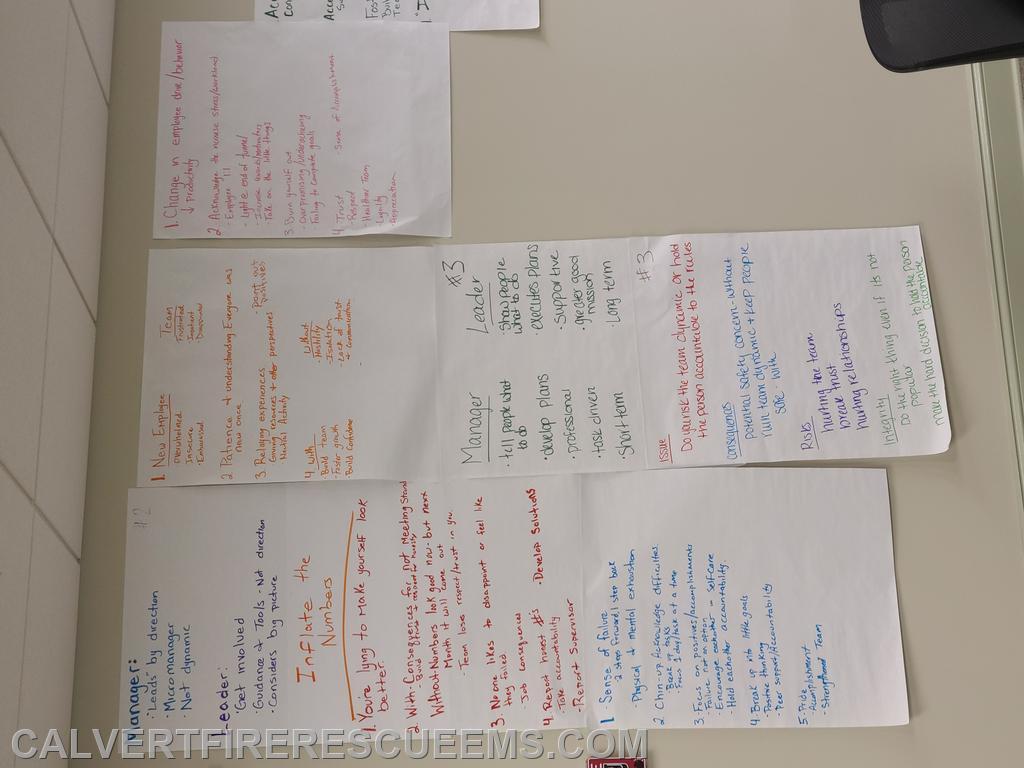 1. Change in employee drive/behavior
↓ productivity
2 Acknowledge the
- Employee
- Light @ end of tunnel
- Take on the little things
3 Burn yourself out
- Overpromising/underachieving
- Failing to complete goals
4. Trust - Sense of Accomplishment
- Respect
- Healthier Team
- Loyalty
- Appreciation
1. New Employee
Overwhelmed
Insecure
2 Patience + Understanding Everyone was
new once
3 Relying experiences · Point out
4 With
- Build team
- Foster growth
- Build Confidence
Without
- Hostility
- Isolation
- Lack of trust
+ Communication
TEAM
Frustrated
Impatient
#3
Manager
· tell people what
to do
· develop plans
· professional
· task driven
· Short term
Leader
· Show people
what to do
· executes plans
· supportive
· greater good
mission
· Long term
#3
Issue
Do you risk the team dynamic or hold
the person accountable to the rules
Consequences
Potential safety concern - without
ruin team dynamic + keep people
safe - with
Risks
hurting the team
break trust
hurting relationships
Integrity
Do the right thing even if its not
Popular
make the hard decision to hold the person
accountable
#2
Manager:
· "Leads" by direction
· Micromanager
· Not dynamic
Leader:
· Get involved
· Guidance & Tools · Not direction
· Considers big picture
Inflate the
Numbers
1. You're lying to make yourself look
better.
2 With - Consequences for not Meeting Stand
Without - Numbers look good now - but next
Month it will come out
- Team lose respect/trust in you.
3. No one likes to disappoint or feel like
they failed.
- Job consequences
4. Report honest #'s · Develop Solutions
- Take accountability
- Report Supervisor
1. Sense of failure
- 2 steps forward, 1 step back
- Physical & mental exhaustion
2. Chin-up (Acknowledge difficulties)
- Break up tasks
- Focus 1 day/task at a time
3. Focus on positives/accomplishments
- Failure not an option
- Encourage eachother - Self-care
- Hold eachother accountability
4. Break up into little goals
- Positive thinking
- Peer support/Accountability
5. Pride
- Accomplishment
- Strengthened Team
CALVERTFIRERESCUEEMS.COM